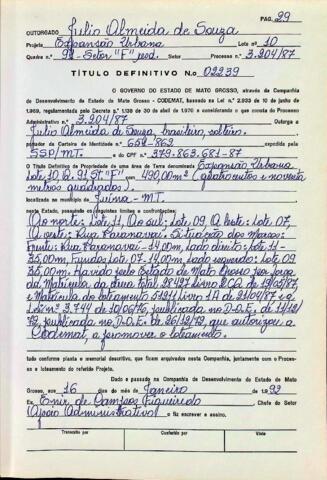 PÁG. 29
OUTORGADO Julio Almeida de Souza
Projeto Expansão Urbana Lote nº 10
Quadra nº 92-Setor "F" Setor Processo nº 3.204/87
TÍTULO DEFINITIVO N.o 02239
O GOVERNO DO ESTADO DE MATO GROSSO, através da Companhia
de Desenvolvimento do Estado de Mato Grosso - CODEMAT, baseado na Lei n.º 2.933 de 10 de junho
de 1969, regulamentada pelo Decreto n.º 1.138 de 30 de abril de 1970 e considerando o que consta do Processo
Administrativo n.º 3.204/87 Outorga a
Julio Almeida de Souza, brasileiro, solteiro.
portador da Carteira de Identidade n.º 654-862 expedida pela
SSP/MT. e do CPF n.º 379.863.681-87
O Título Definitivo de Propriedade de uma área de Terra denominada Expansão Urbana
Lote 10 Q. 91 St. "F" com 490,00m² (quatrocentos e noventa
metros quadrados).
localizada no município de Juina-MT.
neste Estado, passando os seguintes limites e confrontações:
Ao norte: Lote, 11, Ao sul: Lote, 09, A leste: Lote, 07,
A oeste: Rua Paranavaí. Situação dos Marcos:
Frente: Rua Paranavaí-14,00m, Lado direito: Lote, 11-
35,00m, Fundos: Lote, 07-14,00m, Lado esquerdo: Lote, 09
35,00m. Havido pelo Estado de Mato Grosso por força
da Matrícula da área total 28427 Livro 2CQ de 19/05/87,
e Matrícula do Loteamento 51911 Livro 1A de 21/04/87 e a
Lei nº 3.744 de 10/06/76, publicada no D.O.E. de 11/12/
72, publicada no D.O.E. de 26/12/72, que autorizou a
Codemat, a promover o loteamento.
tudo conforme planta e memorial descritivo, que ficam arquivados nesta Companhia, juntamente com o Proces-
so e loteamento do referido Projeto.
Dado e passado na Companhia de Desenvolvimento do Estado de Mato
Grosso, aos 16 dias do mês de Janeiro de 1.992
Eu, Enir de Campos Figueiredo Chefe do Setor
(Apoio Administrativo) o fiz escrever e assino.
Transcrito por Conferido por Visto